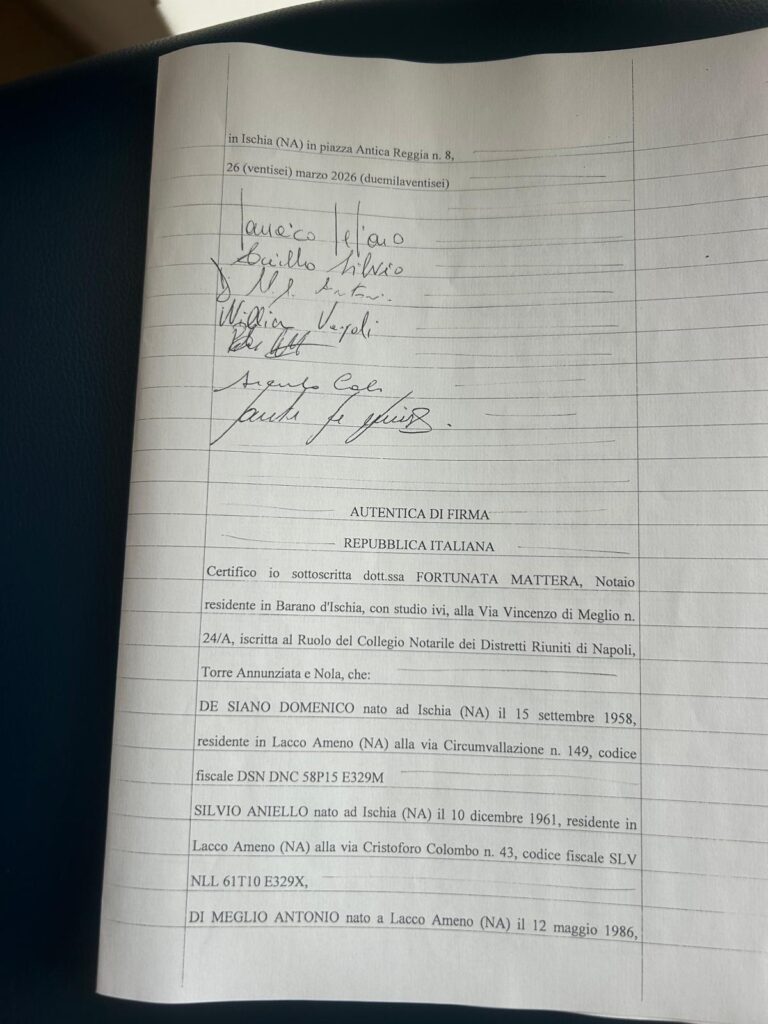 in Ischia (NA) in piazza Antica Reggia n. 8,
26 (ventisei) marzo 2026 (duemilaventisei)
Silvio
William
AUTENTICA DI FIRMA
REPUBBLICA ITALIANA
Certifico io sottoscritta dott.ssa FORTUNATA MATTERA, Notaio
residente in Barano d'Ischia, con studio ivi, alla Via Vincenzo di Meglio n.
24/A, iscritta al Ruolo del Collegio Notarile dei Distretti Riuniti di Napoli,
Torre Annunziata e Nola, che:
DE SIANO DOMENICO nato ad Ischia (NA) il 15 settembre 1958,
residente in Lacco Ameno (NA) alla via Circumvallazione n. 149, codice
fiscale DSN DNC 58P15 E329M
SILVIO ANIELLO nato ad Ischia (NA) il 10 dicembre 1961, residente in
Lacco Ameno (NA) alla via Cristoforo Colombo n. 43, codice fiscale SLV
NLL 61T10 E329X,
DI MEGLIO ANTONIO nato a Lacco Ameno (NA) il 12 maggio 1986,